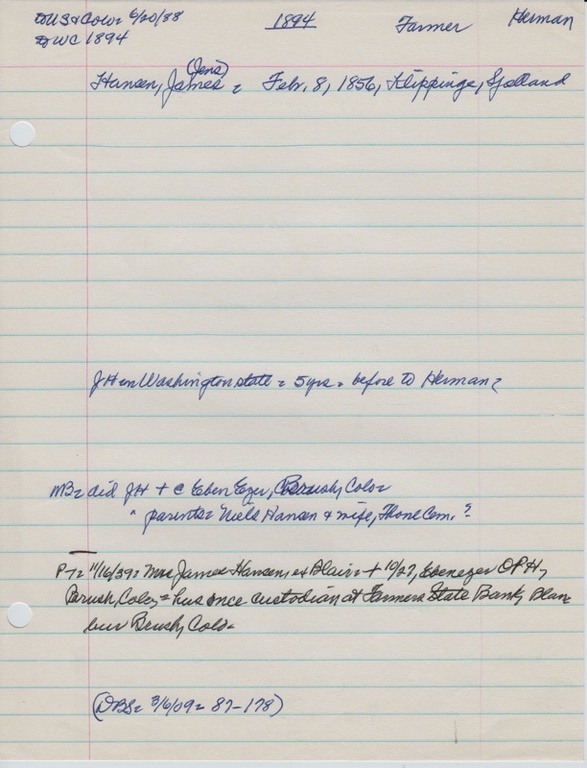 to US & Colo= 6/20/88 1894 Farmer Herman
to WC 1894
(Jens)
Hansen, James = Feb. 8, 1856, Klippinge, Sjolland
JH in Washington state = 5 yrs. = before to Herman?
MB= did JH + @ Eben Ezer, Brush, Colo=
" parents= Niels Hansen & wife, Thone Com. ?
PT= 11/16/39= Mrs James Hansen, ex Blair= + 10/27, Ebenezer OPH,
Brush, Colo, = hus once custodian at Farmers State Bank, Blair
bur Brush, Colo=
(DBS= 3/6/09= 87-178)